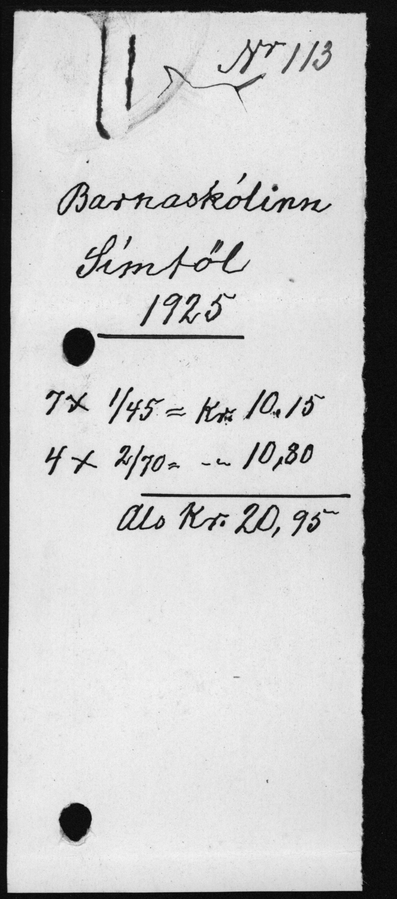 Nr 113
Barnaskólinn
Símtöl
1925
7 x 1/45 = Kr. 10,15
4 x 2/70 = -"- 10,80
Als Kr. 20,95